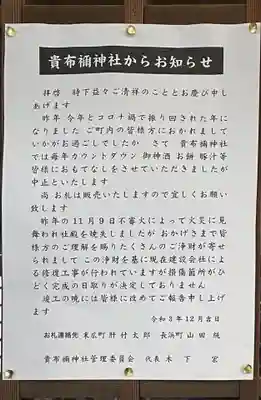 貴布禰神社からお知らせ
拝啓　時下益々ご清祥のこととお慶び申し
あげます
昨年 今年とコロナ禍で振り回された年に
なりました ご町内の皆様方におかれまして
いかがお過ごしでしたか　さて　貴布禰神社
では毎年カウントダウン 御神酒 お餅 豚汁等
皆様におもてなしをさせていただきましたが
中止といたします
尚 お札は販売いたしますので宜しくお願い
致します
昨年の１１月９日不審火によって火災に見
舞われ社殿を焼失しましたが おかげさまで皆
様方のご理解を賜りたくさんのご浄財が寄せ
られまして この浄財を基に現在建設会社によ
る修復工事が行われていますが損傷箇所がひ
どく完成の日取りが決定しておりません
竣工の暁には皆様に改めてご報告申し上げ
ます
令和３年１２月吉日
お札連絡先 末広町 肝付太郎　長浜町 山田
貴布禰神社管理委員会　代表 木下　宏